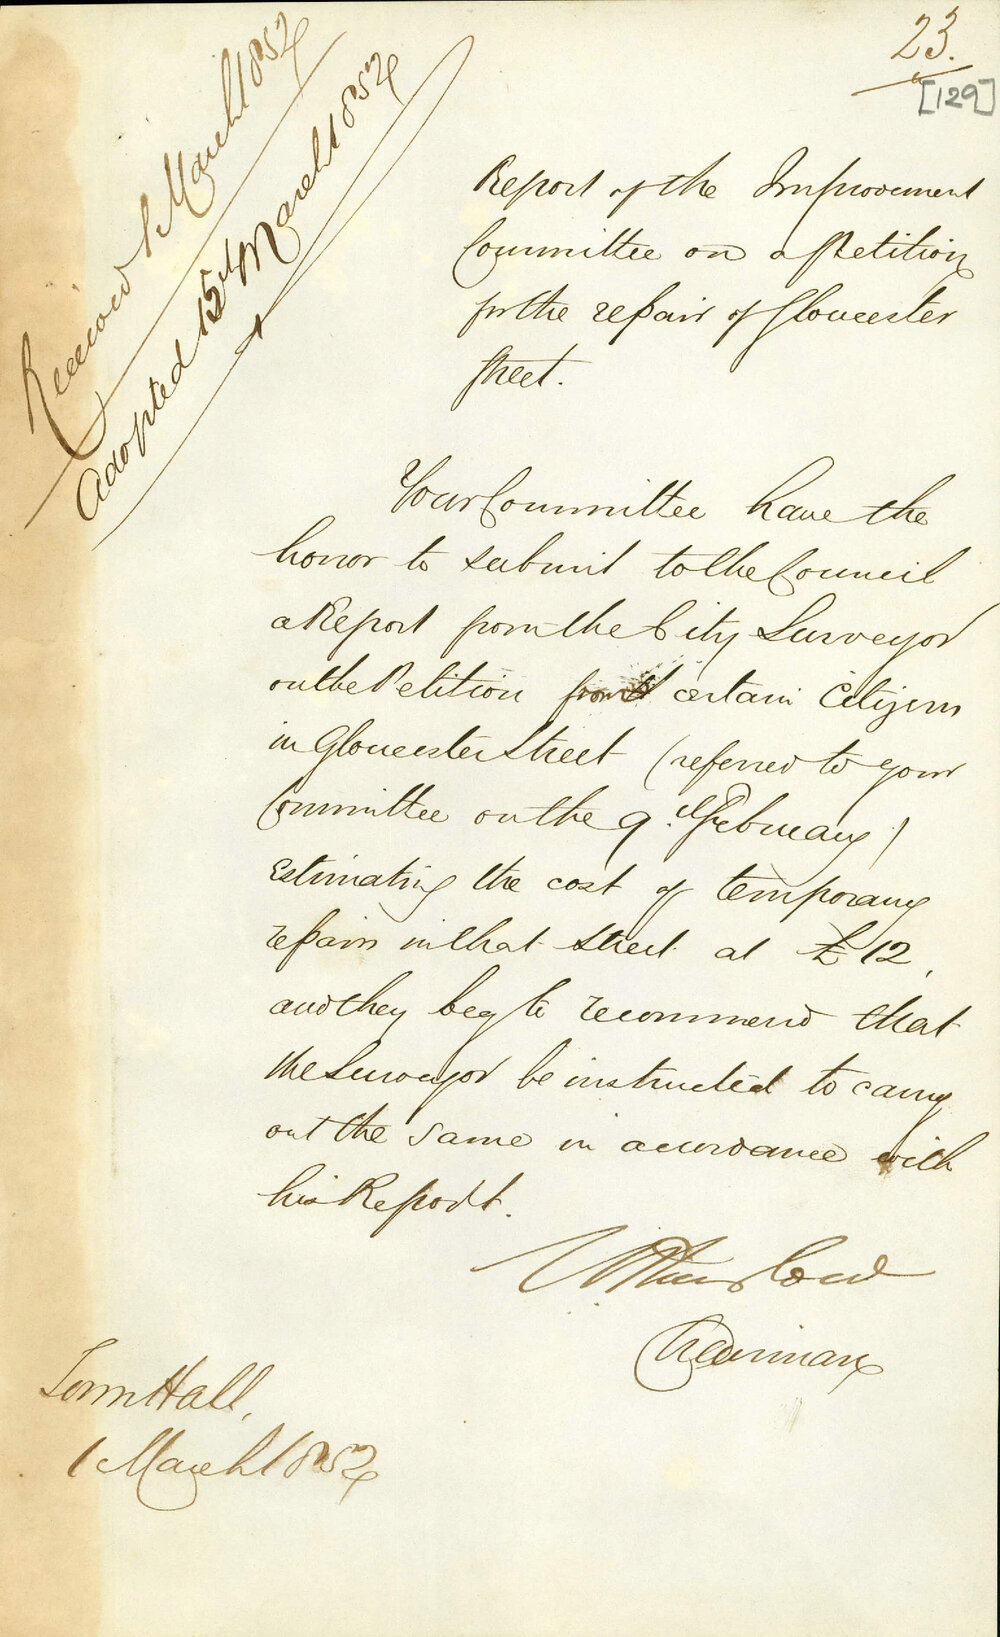 23.
[129]
Received 1 March 1852
Adopted 15th March 1852
Report of the Improvement
Committee on a Petition
for the repair of Gloucester
Street.
Your Committee have the
honor to submit to the Council
a Report from the City Surveyor
on the Petition from certain Citizens
in Gloucester Street (referred to your
Committee on the 9th February)
Estimating the cost of temporary
repairs in that Street at £12,
and they beg to recommend that
the Surveyor be instructed to carry
out the same in accordance with
his Report.
Thurlow
Chairman
Town Hall,
1 March 1852